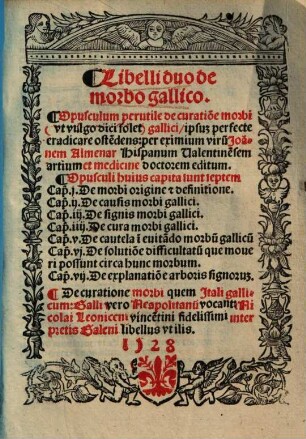 ¶Libelli duo de
morbo gallico.
¶Opusculum perutile de curatiõe morbi
(vt vulgo dici solet) gallici/ipsuz perfecte
eradicare ostẽdens: per eximium virũ Joã⸗
nem Almenar Hispanum Valentinẽsem
artium et medicine doctorem cũtum.
¶Opusculi huius capita sunt septem
Cap̃. j. De morbi origine ⁊ definitione.
Cap̃. ij. De causis morbi gallici.
Cap̃. iij. De signis morbi gallici.
Cap̃. iiij. De cura morbi gallici.
Cap̃. v. De cautela ĩ euitãdo morbũ gallicũ
Cap̃. vj. De solutiõe difficultatũ que moue
ri possunt circa hunc morbum.
Cap̃. vij. De explanatiõe arboris signoruz.
¶De curatione morbi quem Itali galli
cum: Galli vero Neapolitanũ vocant: Ni
colai Leoniceni vincẽtini fidelissimi inter
pretis Galeni libellus vtilis.
1528